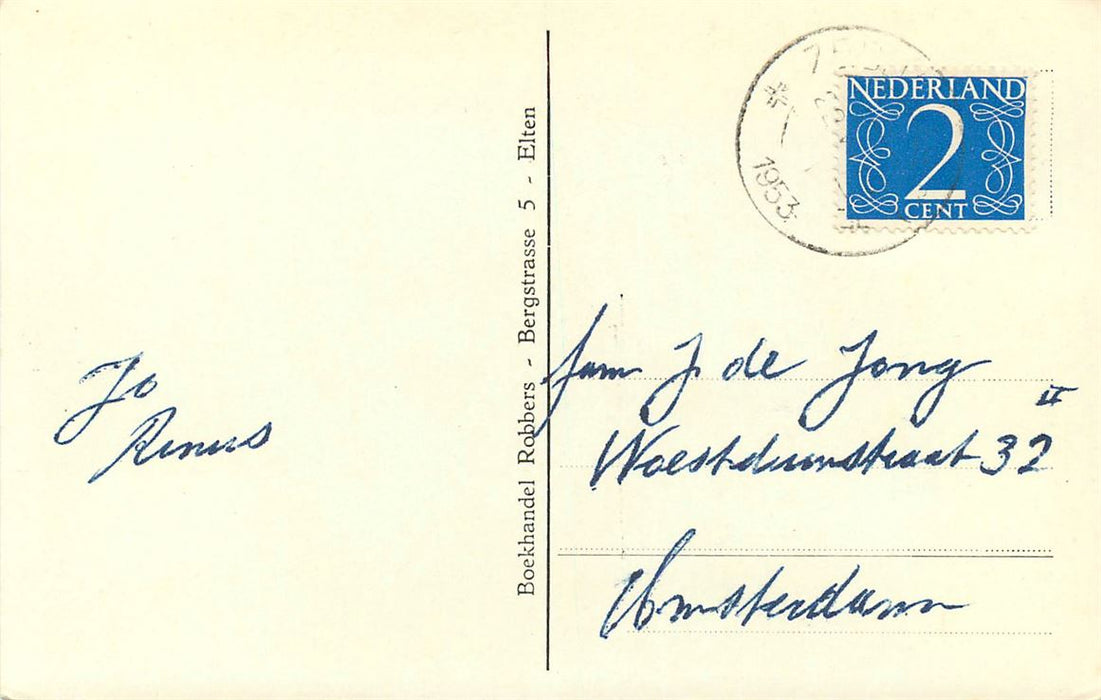 Jo
Rinus
Boekhandel Robbers - Bergstrasse 5 - Elten
1953
NEDERLAND
2
CENT
fam J. de Jong
Woestduinstraat 32 II
Amsterdam